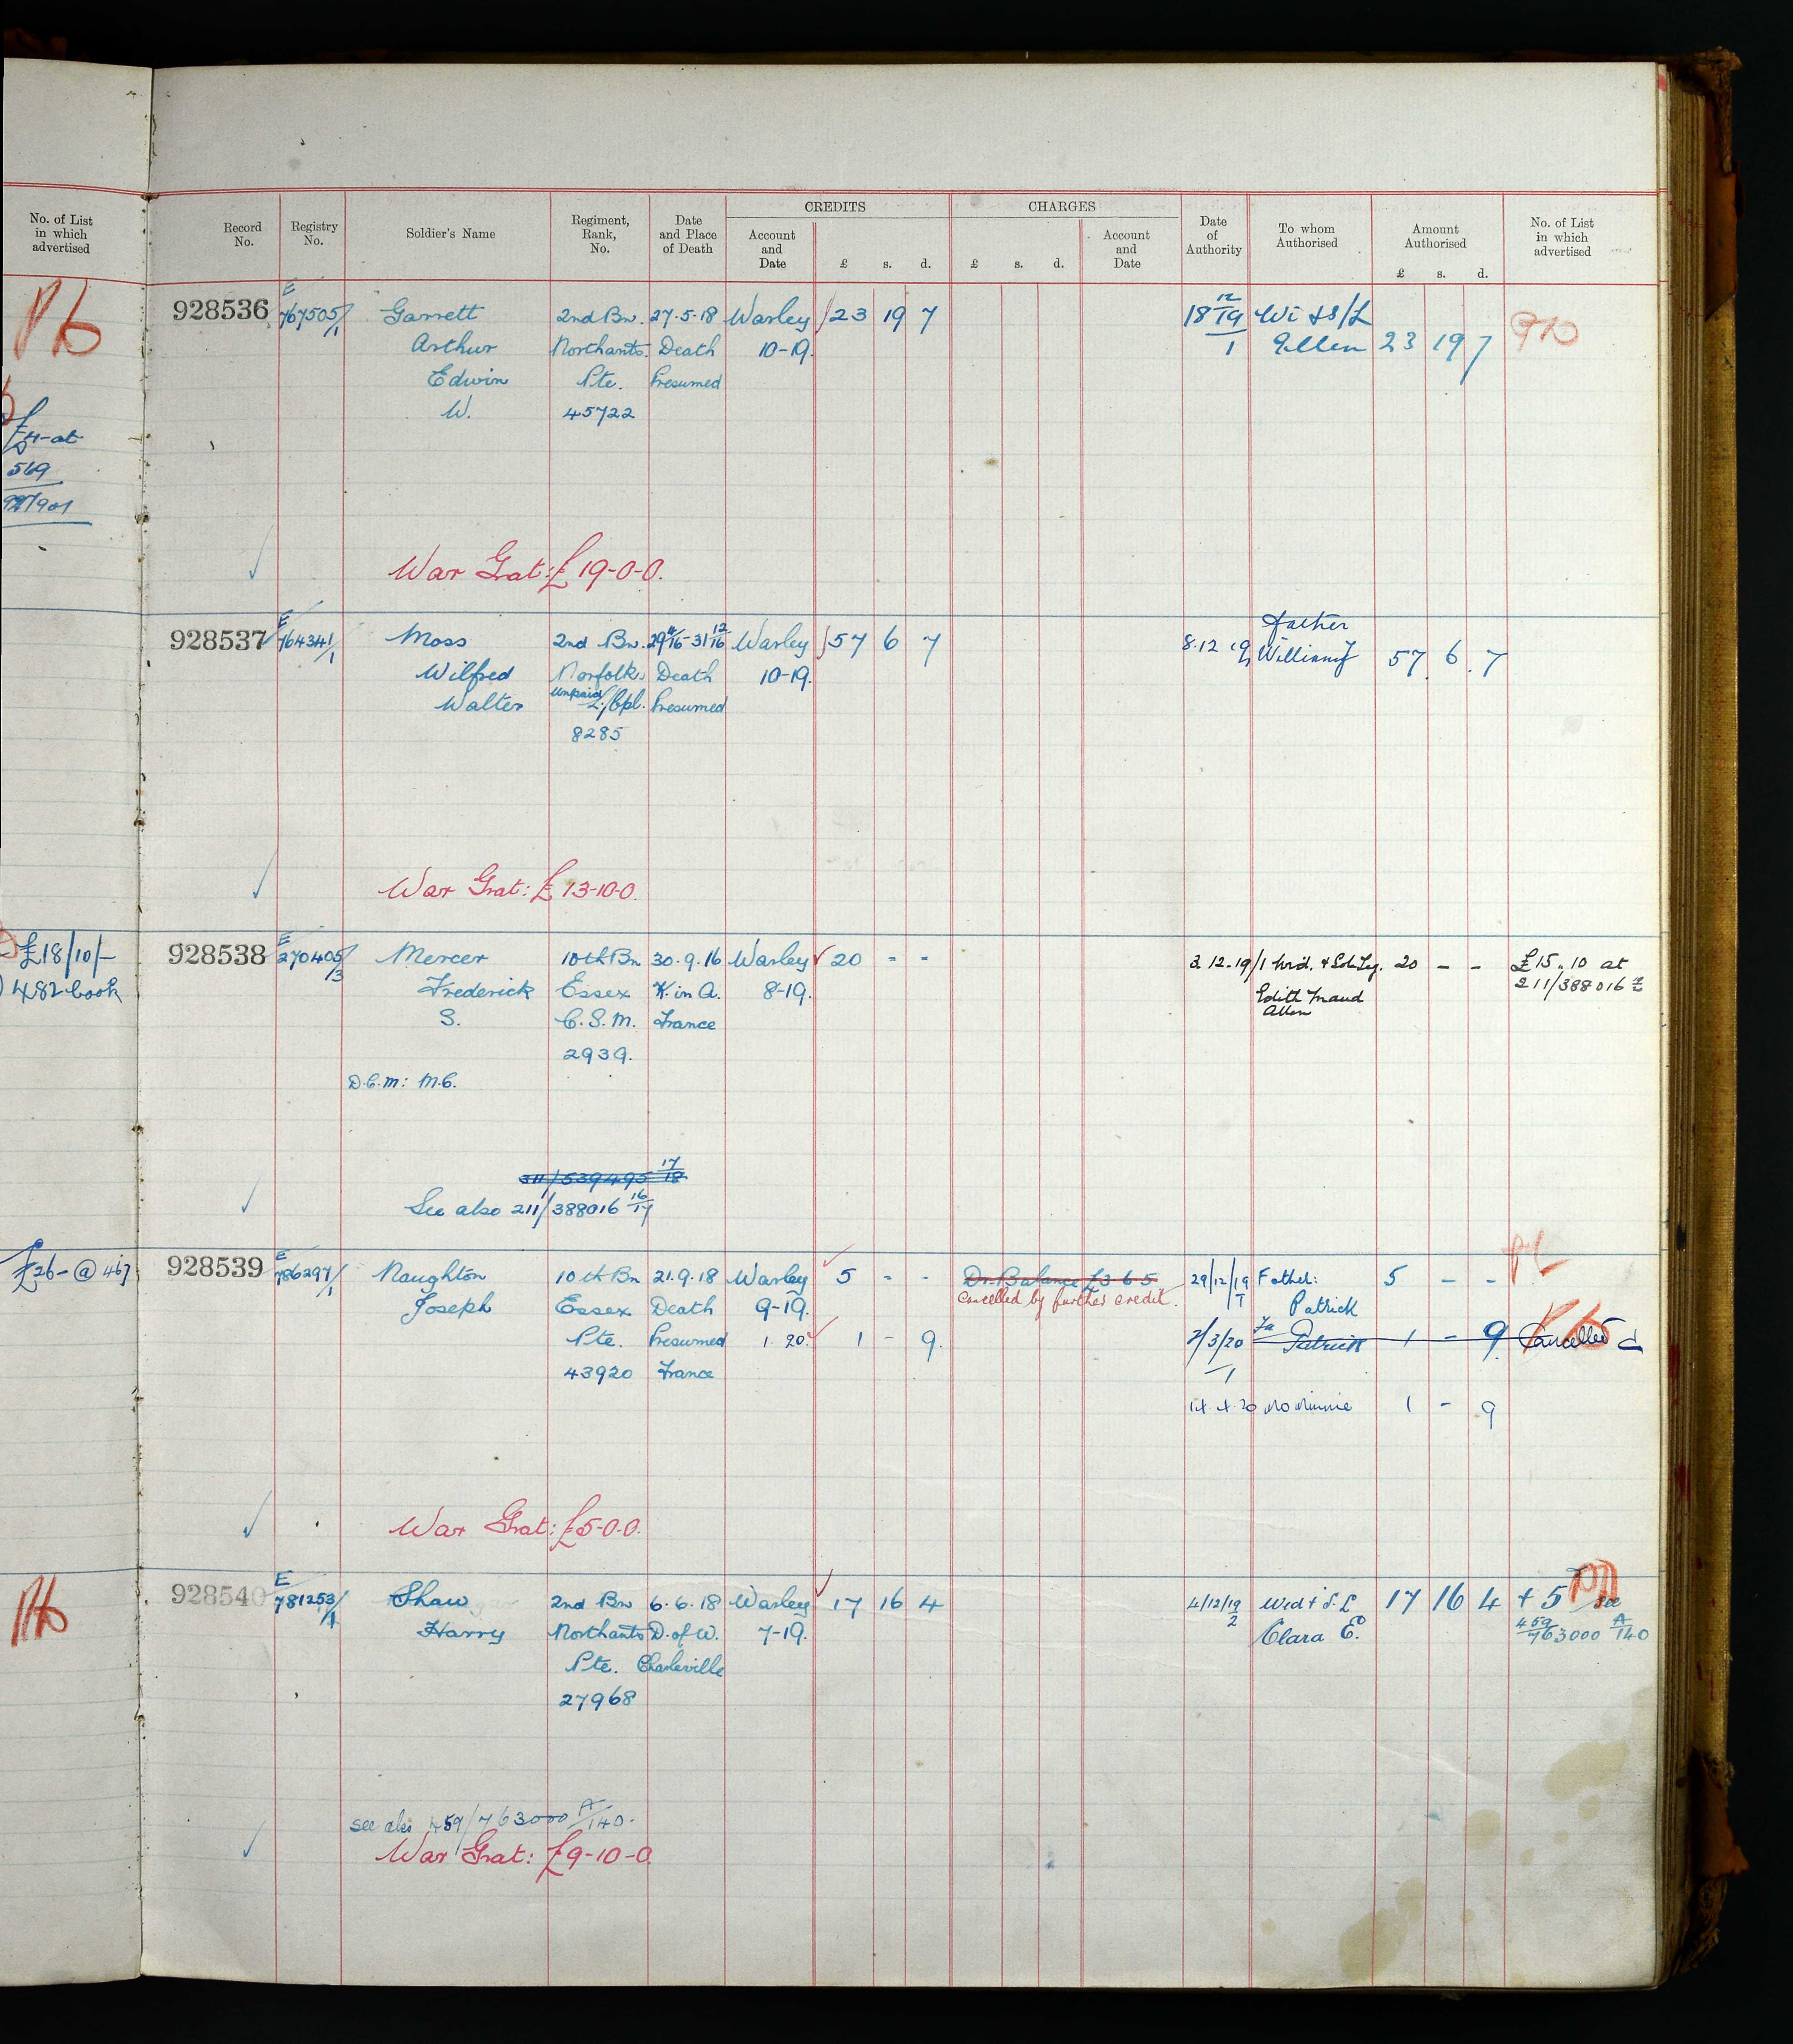 No. of List
in which
advertised
£4-at
569
£18/10/-
482 book
£26-@ 467
Record
No.
Registry
No.
Soldier's Name
Regiment,
Rank,
No.
Date
and Place
of Death
CREDITS
Account
and
Date
£ s. d.
CHARGES
£ s. d.
Account
and
Date
Date
of
Authority
To whom
Authorised
Amount
Authorised
£ s. d.
No. of List
in which
advertised
928536 E 767505/1 Garrett 2nd Bn. 27.5.18 Warley 23 19 7 18 12/19 Wi & S/L
Arthur Northants. Death 10-19. 1 Ellen 23 19 7
Edwin Pte. Presumed
W. 45722
War Grat: £19-0-0.
928537 E 764341/1 Moss 2nd Bn. 29 4/16 - 31 12/16 Warley 57 6 7 8.12.19 Father
Wilfred Norfolks Death 10-19. William J 57 6 7
Walter Unpaid L/Cpl. Presumed
8285
War Grat: £13-10-0.
928538 E 270405/3 Mercer 10th Bn 30.9.16 Warley 20 - - 2.12.19/1 Wid. & Sol. Leg. 20 - - £15.10 at
Frederick Essex K. in A. 8-19. Edith Maud 211/388016 E
S. C.S.M. France Allen
2939.
D.C.M: M.C.
311/539495 17/18
See also 211/388016 16/17
928539 E 786297/1 Naughton 10th Bn 21.9.18 Warley 5 - - Dr. Balance £3-6-5 29/12/19 Father: 5 - -
Joseph Essex Death 9-19. Cancelled by further credit. 1 Patrick
Pte. Presumed 1.20. 1 - 9. 2/3/20 Fa Patrick 1 - 9 Cancelled
43920 France 1
14.4.20 Mo Minnie 1 - 9
War Grat: £5-0-0.
928540 E 781253/1 Shaw 2nd Bn 6.6.18 Warley 17 16 4 4/12/19 Wid & S.L 17 16 4 + 5 see
Harry Northants D. of W. 7-19. 2 Clara E. 459/763000 A/140
Pte. Charleville
27968
see also 459/763000 A/140.
War Grat: £9-10-0